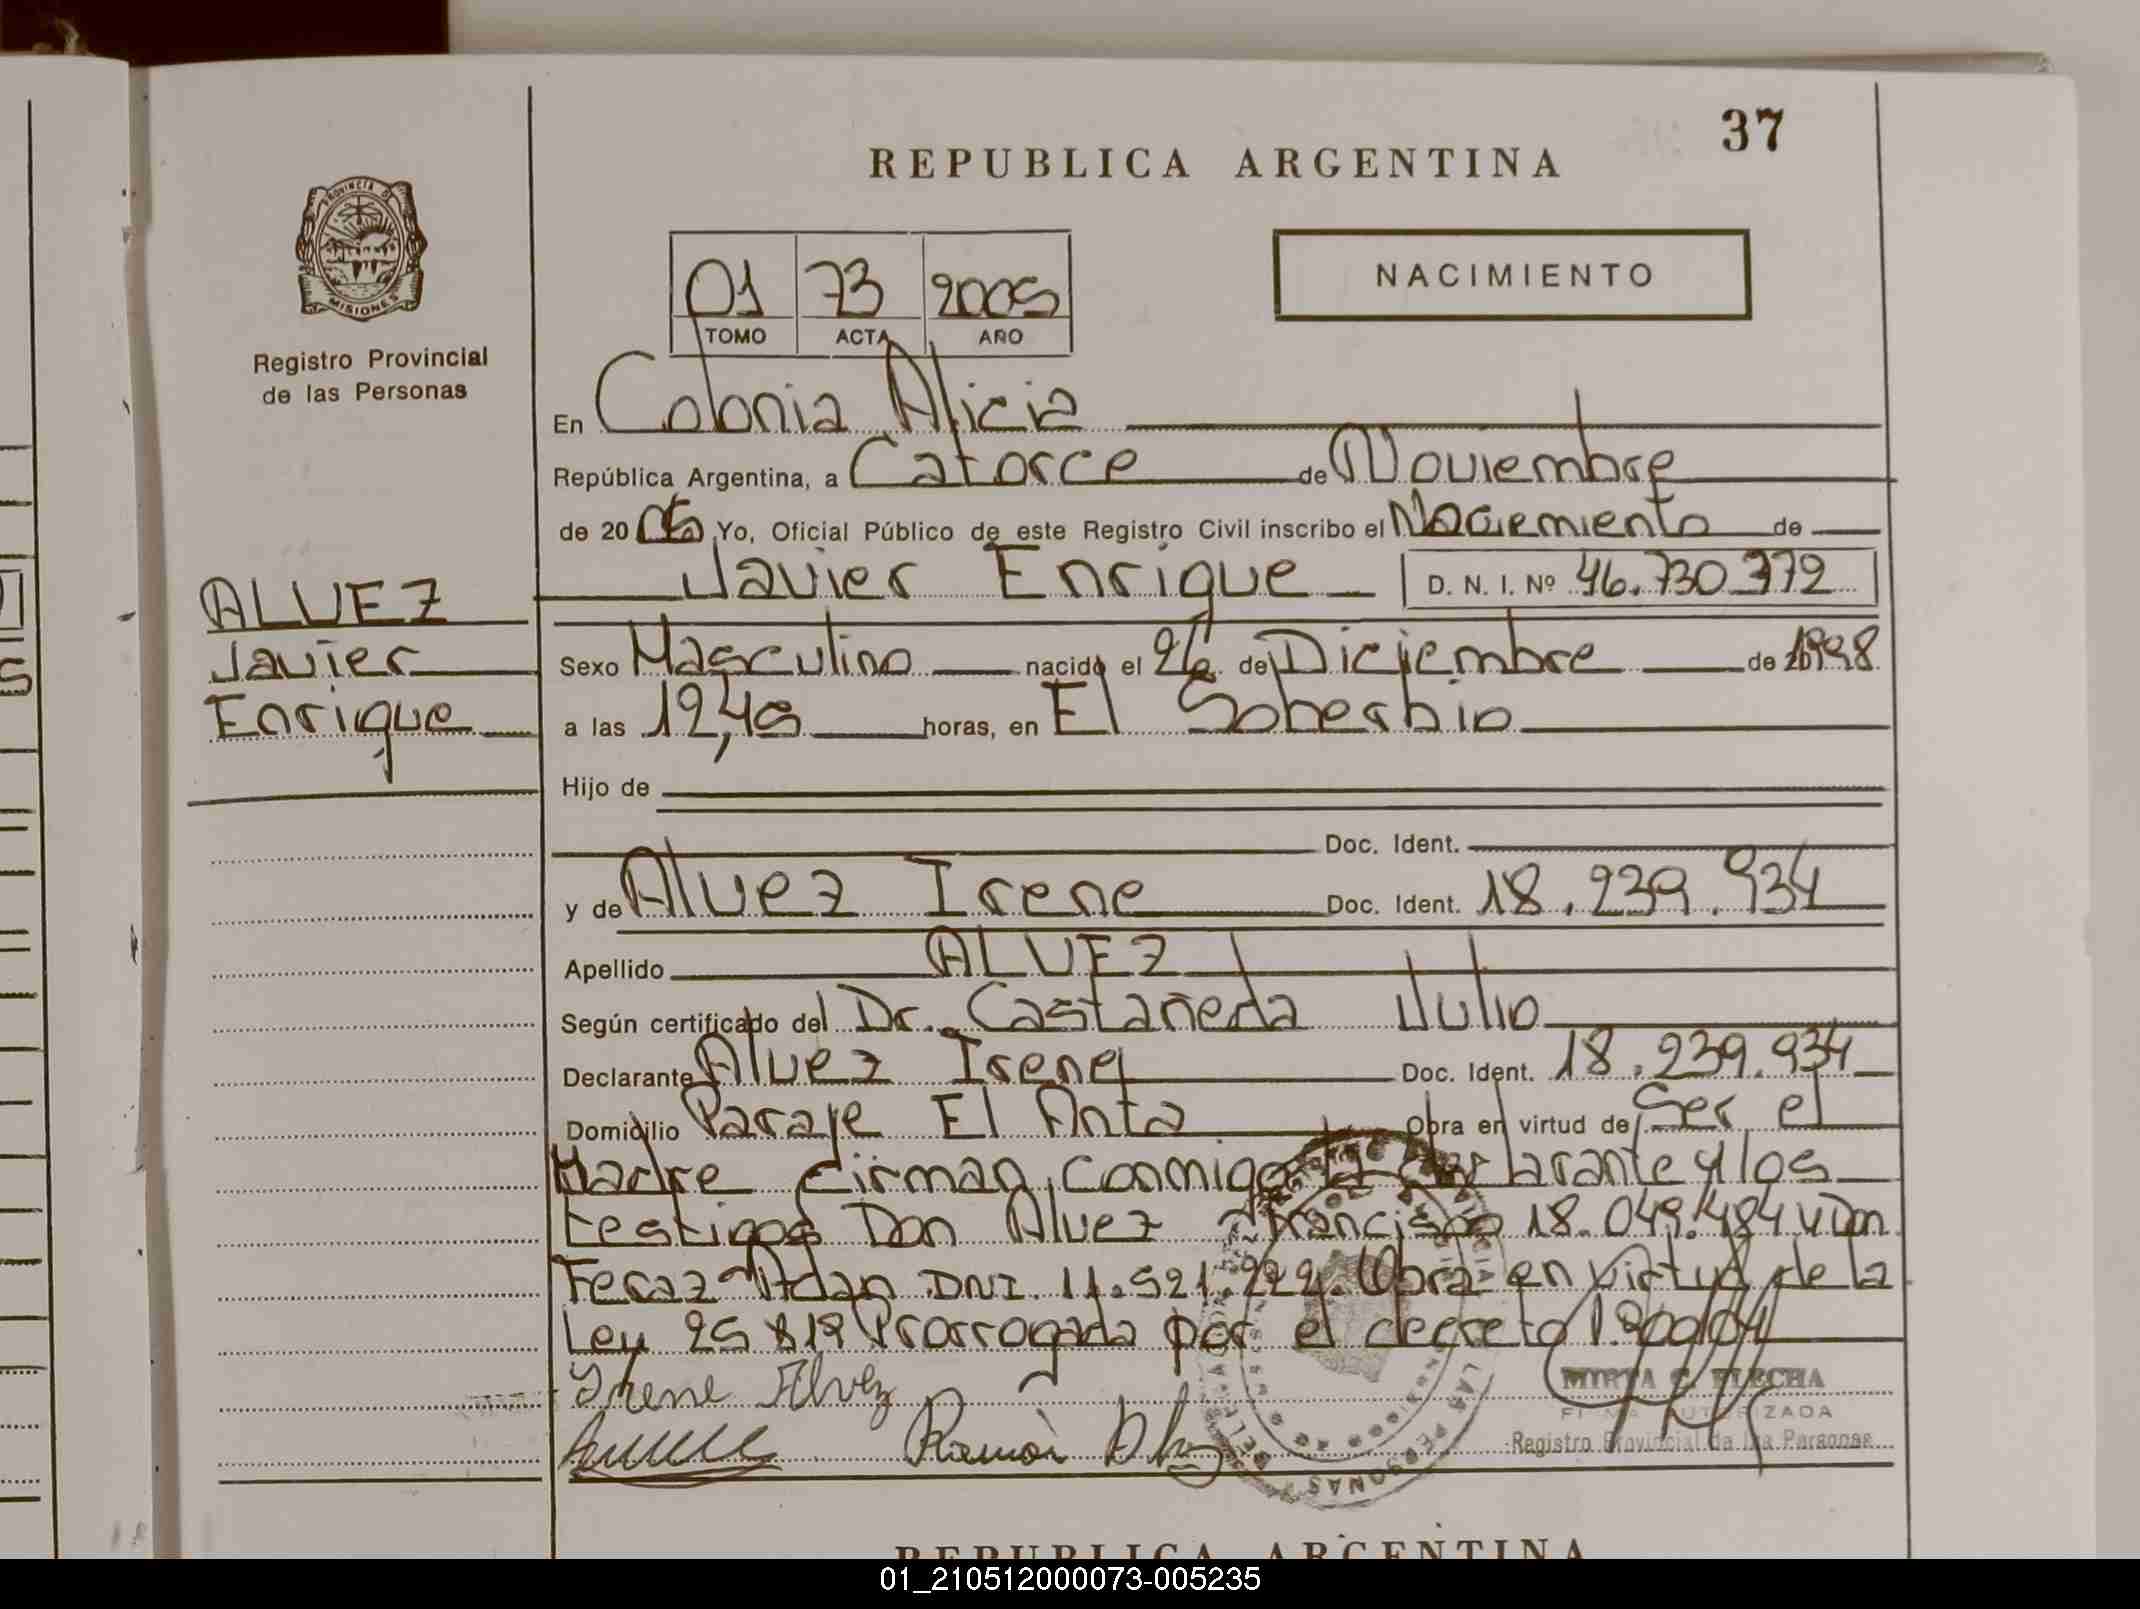 37
REPUBLICA ARGENTINA
PROVINCIA DE MISIONES
Registro Provincial
de las Personas
01 73 2005
TOMO ACTA AÑO
NACIMIENTO
En Colonia Alicia
República Argentina, a Catorce de Noviembre
de 2005 Yo, Oficial Público de este Registro Civil inscribo el Naciemiento de
ALVEZ
Javier
Enrique
Javier Enrique D. N. I. Nº 46.730.772
Sexo Masculino nacido el 26 de Diciembre de 1998
a las 12,45 horas, en El Soberbio
Hijo de
Doc. Ident.
y de Alvez Irene Doc. Ident. 18.239.934
Apellido ALVEZ
Según certificado del Dr. Castañeda Julio
Declarante Alvez Irene Doc. Ident. 18.239.934
Domicilio Paraje El Anta Obra en virtud de Ser el
Madre firman conmigo la declarante y los
testigos Don Alvez Francisco 18.049.484 y Don
Feraz Adan DNI. 11.521.222. Obra en virtud de la
Ley 25 819 Prorrogada por el decreto
Irene Alvez
Ramón
MIRTA C. FLECHA
FIRMA AUTORIZADA
Registro Provincial de las Personas
REPUBLICA ARGENTINA
01_210512000073-005235